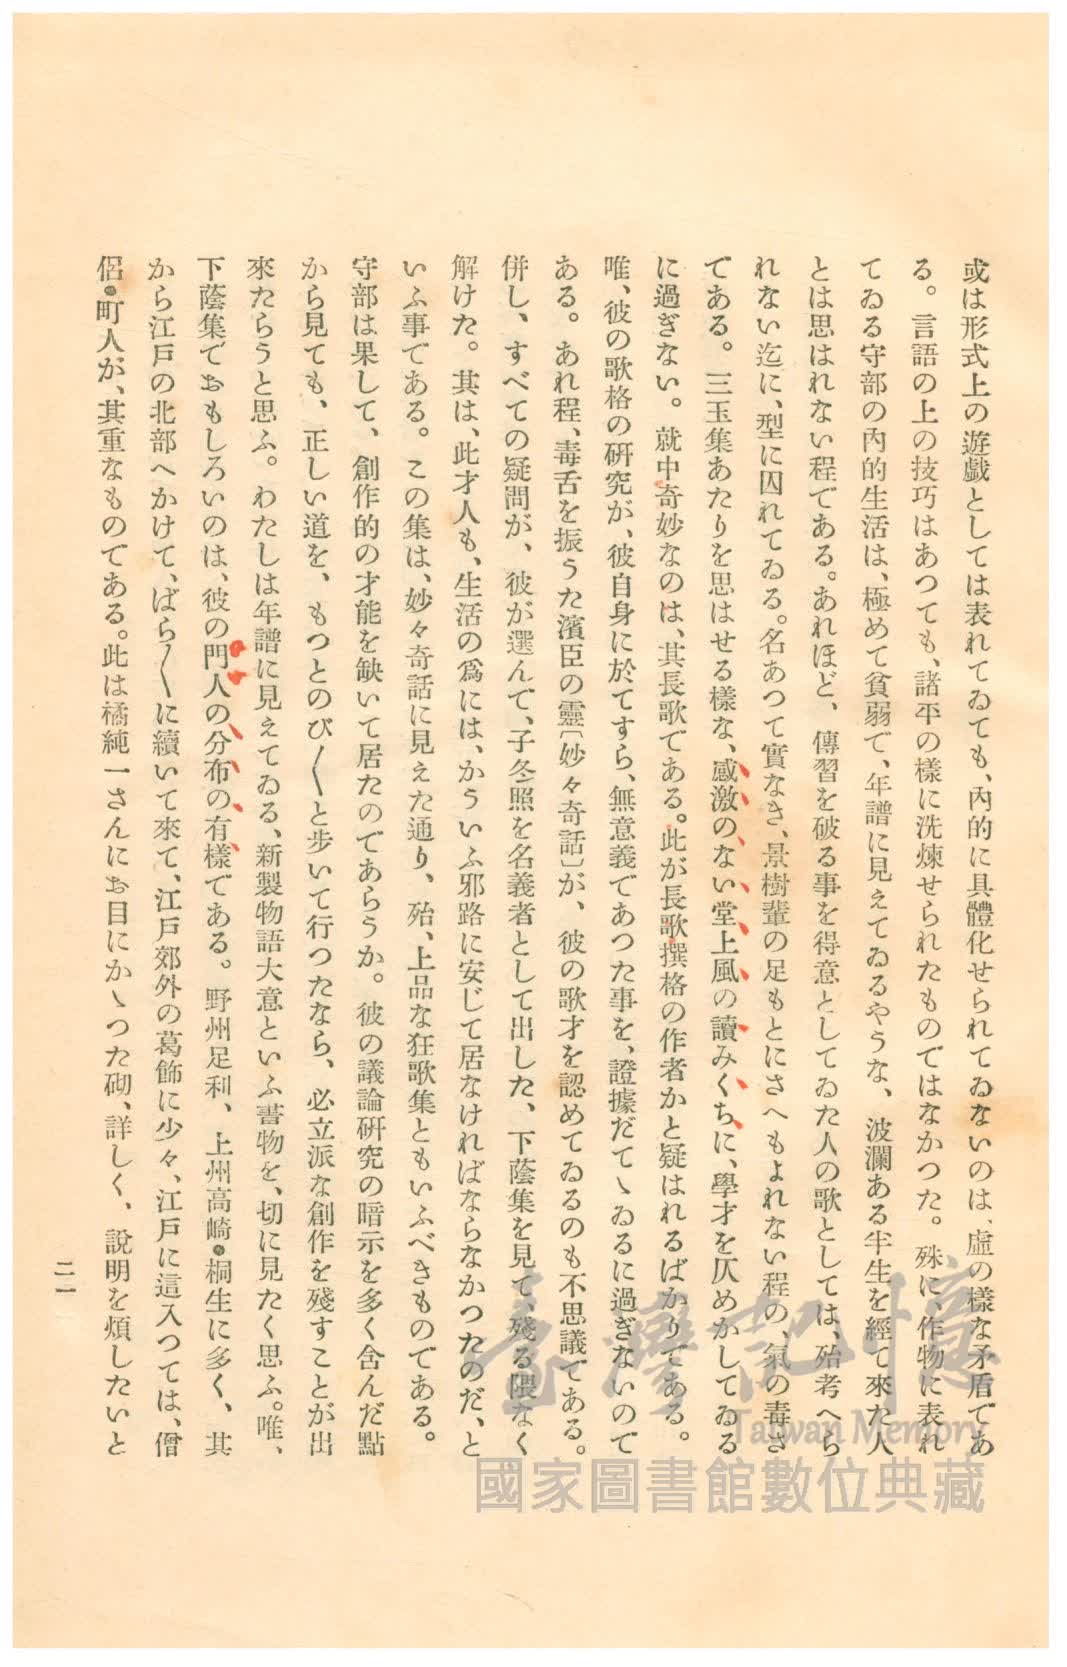 或は形式上の遊戲としては表れてゐても、內的に具體化せられてゐないのは、虛の樣な矛盾であ
る。言語の上の技巧はあつても、諸平の樣に洗煉せられたものではなかつた。殊に、作物に表れ
てゐる守部の內的生活は、極めて貧弱で、年譜に見えてゐるやうな、波瀾ある半生を經て來た人
とは思はれない程である。あれほど、傳習を破る事を得意としてゐた人の歌としては、殆考へら
れない迄に、型に囚れてゐる。名あつて實なき、景樹輩の足もとにさへもよれない程の、氣の毒さ
である。三玉集あたりを思はせる樣な、感激のない堂上風の讀みくちに、學才を仄めかしてゐる
に過ぎない。就中奇妙なのは、其長歌である。此が長歌撰格の作者かと疑はれるばかりである。
唯、彼の歌格の研究が、彼自身に於てすら、無意義であつた事を、證據だてゝゐるに過ぎないので
ある。あれ程、毒舌を振うた濱臣の靈〔妙々奇話〕が、彼の歌才を認めてゐるのも不思議である。
併し、すべての疑問が、彼が選んで、子冬照を名義者として出した、下蔭集を見て、殘る隈なく
解けた。其は、此才人も、生活の爲には、かういふ邪路に安じて居なければならなかつたのだ、と
いふ事である。この集は、妙々奇話に見えた通り、殆、上品な狂歌集ともいふべきものである。
守部は果して、創作的の才能を缺いて居たのであらうか。彼の議論硏究の暗示を多く含んだ點
から見ても、正しい道を、もつとのび〳〵と步いて行つたなら、必立派な創作を殘すことが出
來たらうと思ふ。わたしは年譜に見えてゐる、新製物語大意といふ書物を、切に見たく思ふ。唯、
下蔭集でおもしろいのは、彼の門人の分布の有樣である。野州足利、上州高崎・桐生に多く、其
から江戶の北部へかけて、ばら〳〵に續いて來て、江戶郊外の葛飾に少々、江戶に這入つては、僧
侶・町人が、其重なものである。此は橘純一さんにお目にかゝつた砌、詳しく、說明を煩したいと
二一
臺灣記憶
Taiwan Memory
國家圖書館數位典藏